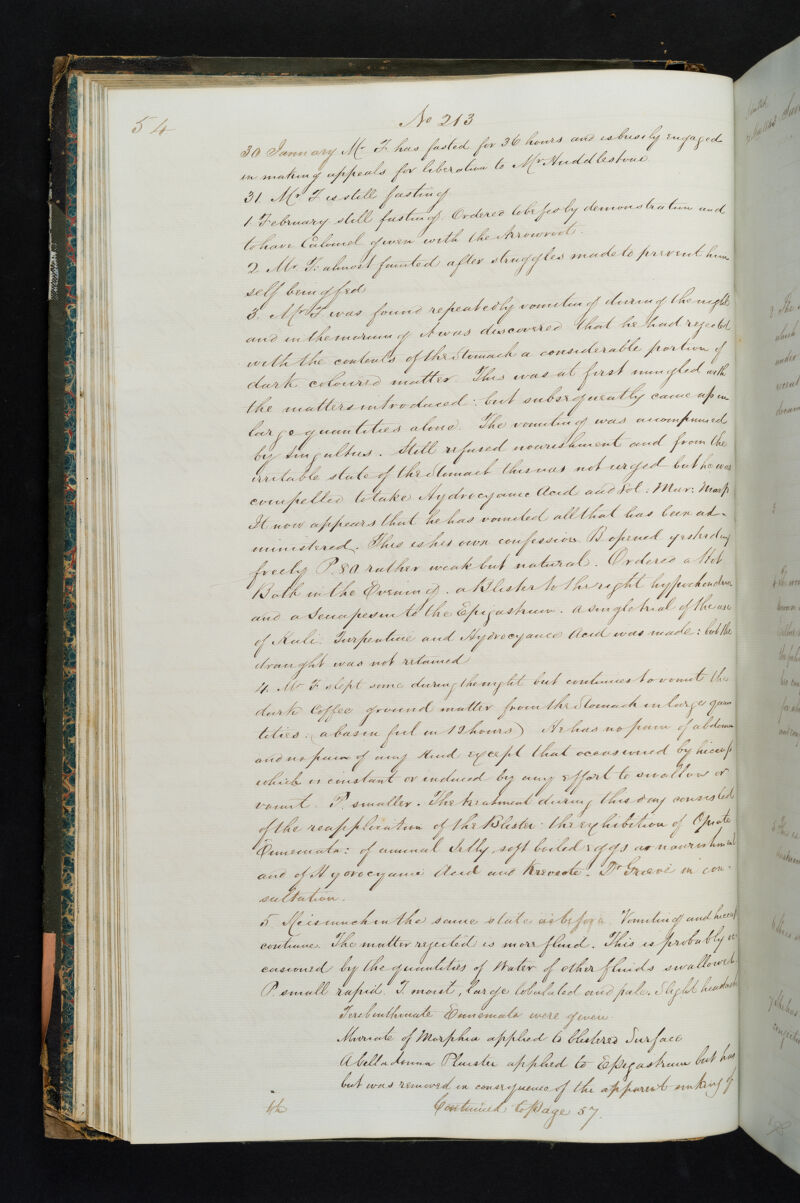 54
No 213
30 January Mr F. has fasted for 36 hours and is busily engaged
in making appeals for liberation to Mr Huddlestone
31 Mr F is still fasting
1 February still fasting. Ordered to be fed by demonstration and
to have Calomel given with the Arrowroot.
2 Mr F. almost fainted after struggles made to prevent him
self being fed
3. Mr F. was found repeatedly vomiting during the night
and in the morning it was discovered that he had rejected
with the contents of the stomach a considerable portion of
dark coloured matter. This was at first mingled with
the matters introduced: but subsequently came up in
large quantities alone. The vomiting was accompanied
by Singultus. Still refused nourishment and from the
irritable state of the stomach this was not urged but he was
compelled to take Hydrocyanic Acid and Sol: Mur: Morph
It now appears that he has vomited all that has been ad-
ministered. This is his own confession B opened yesterday
freely P. 80 rather weak but natural. Ordered a Hot
Bath in the Evening. a Blister to the right hypochondrium
and a Senapism to the Epigastrium. a single trial of the use
of Kali Turpentine and Hydrocyanic Acid was made: but the
draught was not retained
4. Mr F slept some during the night but continues to vomit the
dark Coffee ground matter from the stomach in large quan
tities. (a basin full in 12 hours) He has no pain of abdomen
and no pain of any kind except that occasioned by hiccup
which is constant or induced by any effort to swallow or
vomit. P. smaller. The treatment during this day consisted
of the reapplication of the Blister: the exhibition of Opiate
Ennemata: of animal Jelly, soft boiled eggs as nourishment
and of Hydrocyanic Acid and Kreosote. Dr Grieve in con-
sultation.
5 He is much in the same state as before. Vomiting and hiccup
continue. The matter rejected is more fluid. This is probably oc
casioned by the quantities of Water of other fluids swallowed
P. small rapid. T. moist, large lobulated and pale. Slight headache
Terebinthinate Ennemata were given.
Muriate of Morphia applied to blistered Surface
A belladonna Plaister applied to Epigastrium but has
but was removed in consequence of the apparent sinking of
Continued to Page 57.